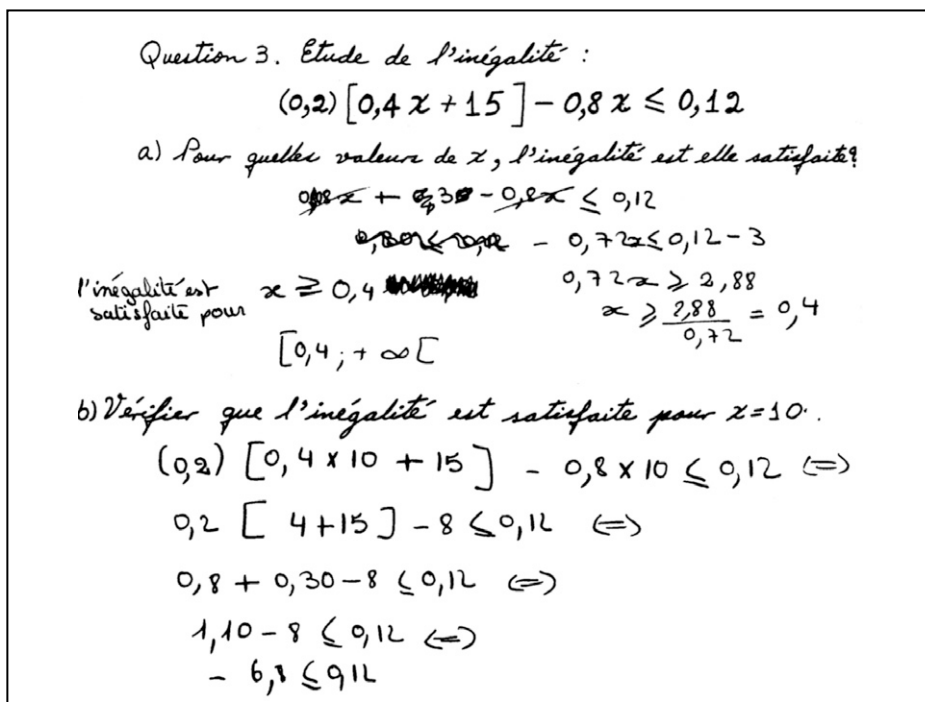 Question 3. Etude de l'inégalité :
(0,2) [0,4 x + 15] - 0,8 x ≤ 0,12
a) Pour quelles valeurs de x, l'inégalité est elle satisfaite?
0,08x + 0,30 - 0,8x ≤ 0,12
- 0,72x ≤ 0,12 - 3
l'inégalité est satisfaite pour x ≥ 0,4
0,72x ≥ 2,88
x ≥ 2,88/0,72 = 0,4
[0,4 ; + ∞ [
b) Vérifier que l'inégalité est satisfaite pour x = 10.
(0,2) [0,4 × 10 + 15] - 0,8 × 10 ≤ 0,12 <=>
0,2 [ 4+15] - 8 ≤ 0,12 <=>
0,8 + 0,30 - 8 ≤ 0,12 <=>
1,10 - 8 ≤ 0,12 <=>
- 6,8 ≤ 0,12